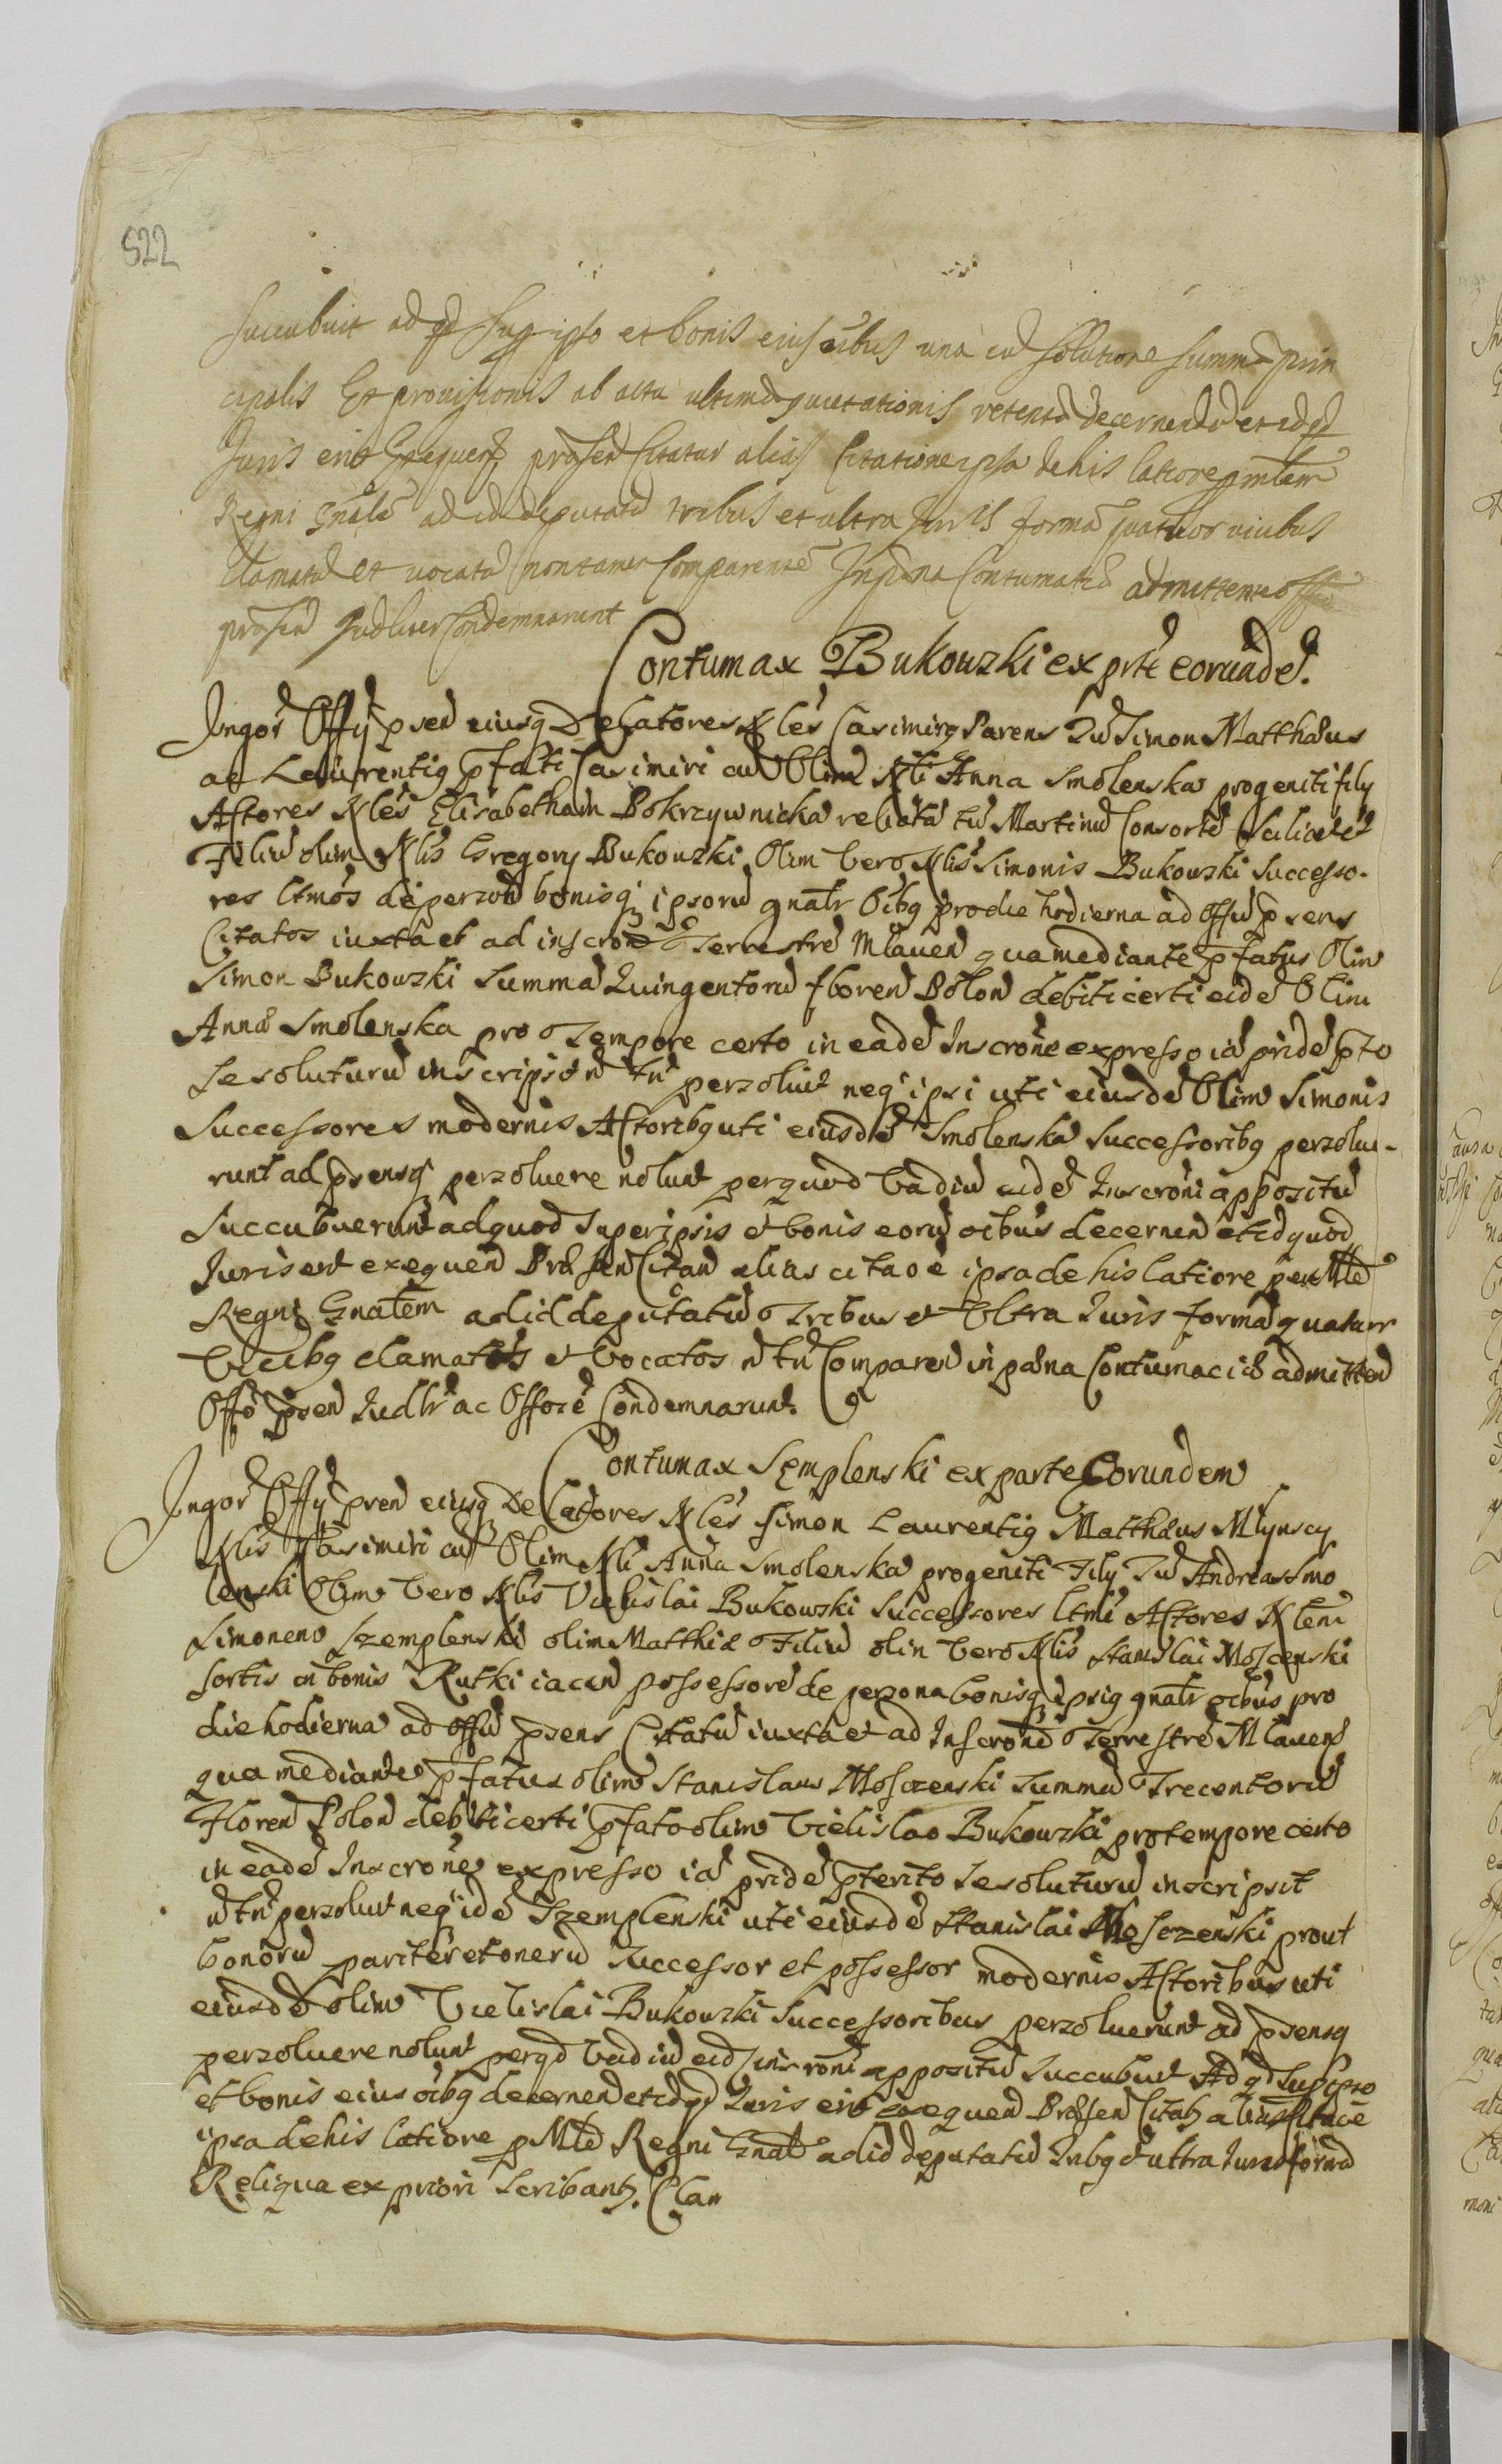 522
succubuit ad qd Sup ipso et bonis eius oibus una cu Solutione Summae prin
cipalis Et provisionis ab acta ultimae quietationis retentae decernendu et id qd
Juris erit Exequen praesen Citatur alias Citatione ipsa de his latiore p mlem
Regni Gnale ad id deputatu tribus et ultra Juris forma quatuor vicibus
Clamatu et vocatu non tamen Comparente In paena Contumatiae admittente offu
praesen Judliter Condemnarunt
Contumax Bukowski ex prte eorunde.
Ingor Offy psen eiusq Delatores Nles Casimirg Parens Tu Simon Matthaeus
ac Laurentig pfati Casimiri cu Olim Nli Anna Smolenska progeniti fily
Actores Nles Elisabetham Bokrzywnicka relicta tu Martinu Consorte Scilicet et
Filiu olim Nlis Gregory Bukowski Olim vero Nlis Simonis Bukowski Successo-
res ltmos de person bonisq ipsoru gnalr oibg pro die hodierna ad offu psens
Citatos iuxta et ad inscrone Terrestre Mlaven qua mediante pfatus Olim
Simon Bukowski Summa Quingentoru floren Polon debiti certi eide Olim
Anna Smolenska pro Tempore certo in eade Inscrone expresso ia pride pto
se soluturu inscripsit n tn persolvit neq ipsi uti eiusde Olim Simonis
Successores modernis Actoribg uti eiusde Smolenska Successoribg persolve-
runt ad psensq persolvere nolunt per quod Vadiu eide Inscroni appositu
Succubuerunt ad quod Super ipsis et bonis eoru oibus decernen et id quod
Juris erit exequen Praesen Citan alias citaoe ipsa de his latiore per Mle
Regni Gnalem ad id deputatu Tribus et Ultra Juris forma quatuor
Vicibg clamatos et Vocatos n tn Comparen in paena Contumaciae admitten
Offo psen Judlr ac Offose Condemnarunt.
Contumax Semplenski ex parte Eorundem
Ingor Offy psen eiusq Delatores Nles Simon Laurentig Matthaeus Mlynscy
Nlis Casimiri cu Olim Nli Anna Smolenska progeniti Fily Tu Andreas Smo
lenski Olim vero Nlis Vielislai Bukowski Successores ltmi Actores Nlem
Simonem Szemplenski olim Matthiae Filiu olim vero Nlis Stanislai Moscenski
sortis in bonis Rutki iacen possessore de persona bonisq ipsig gnalr oibus pro
die hodierna ad offu psens Citatu iuxta et ad Inscrone Terrestre Mlavens
qua mediante pfatus olim Stanislaus Mosczenski Summa Trecentoru
Floren Polon debiti certi pfato olim Vielislao Bukowski pro tempore certo
in eade Inscrone expresso ia pride pterito se soluturu inscripsit
n tn persolvit neq ide Szemplenski uti eiusde Stanislai Mosczenski prout
bonoru pariter et oneru Successor et possessor modernis Actoribus uti
eiusde olim Vielislai Bukowski Successoribus persolverunt ad psensq
persolvere nolunt per qd Vadiu eid inscroni appositu Succubuit Ad qd Sup ipso
et bonis eius oibg decernen et id qd Juris erit exequen Praesen Citatz alias Citaoe
ipsa de his latiore p Mle Regni Gnale ad id deputatu Tribg et ultra Juris forma
Reliqua ex priori Scribantz. Clam